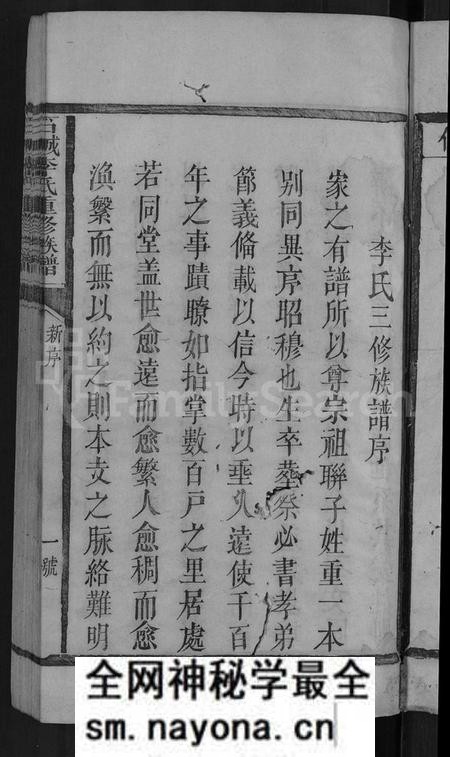 李氏三修族譜序
家之有譜所以尊宗祖聯子姓重一本
別同異序昭穆也生卒塟祭必書孝弟
節義偹載以信今時以垂久遠使千百
年之事蹟瞭如指掌數百戸之里居處
若同堂盖世愈遠而愈繁人愈稠而愈
渙繫而無以約之則本支之脉絡難明
城李氏重修族譜
新序
一號
FamilySearch
全网神秘学最全
sm.nayona.cn